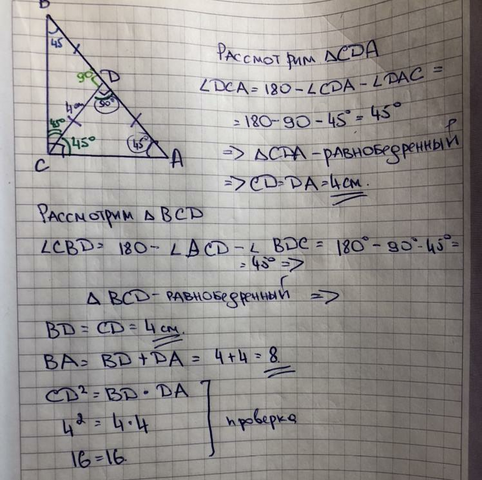 B
45
90°
D
90°
4см
45°
45°
45°
C
A
Рассмотрим ΔCDA
∠DCA = 180 - ∠CDA - ∠DAC =
= 180 - 90 - 45° = 45°
=> ΔCDA - равнобедренный
=> CD = DA = 4 см.
Рассмотрим Δ BCD
∠CBD = 180 - ∠ACD - ∠ BDC = 180° - 90° - 45° =
= 45° =>
Δ BCD - равнобедренный =>
BD = CD = 4 см.
BA = BD + DA = 4 + 4 = 8
CD² = BD · DA
4² = 4 · 4
16 = 16.
проверка